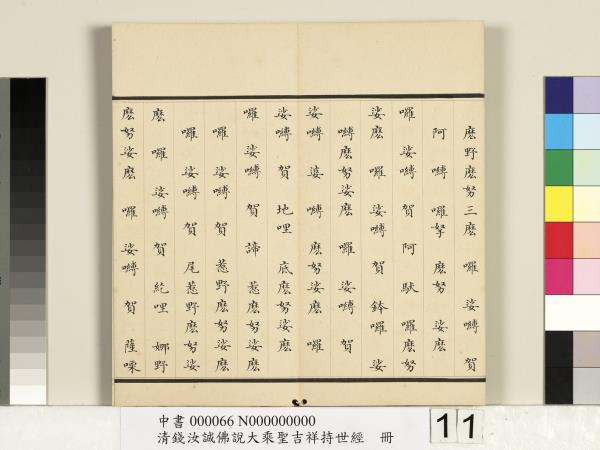 麽野麽努三麽囉娑嚩賀
阿嚩囉拏麽努娑麽
囉娑嚩賀阿䭾囉麽努
娑麽囉娑嚩賀鉢囉娑
嚩麽努娑麽囉娑嚩賀
娑嚩婆嚩麽努娑麽囉
娑嚩賀地哩底麽努娑麽
囉娑嚩賀諦惹麽努娑麽
囉娑嚩賀惹野麽努娑麽
囉娑嚩賀尾惹野麽努娑
麽囉娑嚩賀紇哩娜野
麽努娑麽囉娑嚩賀薩㗚
中書 000066 N000000000
清錢汝誠佛說大乘聖吉祥持世經 冊
11